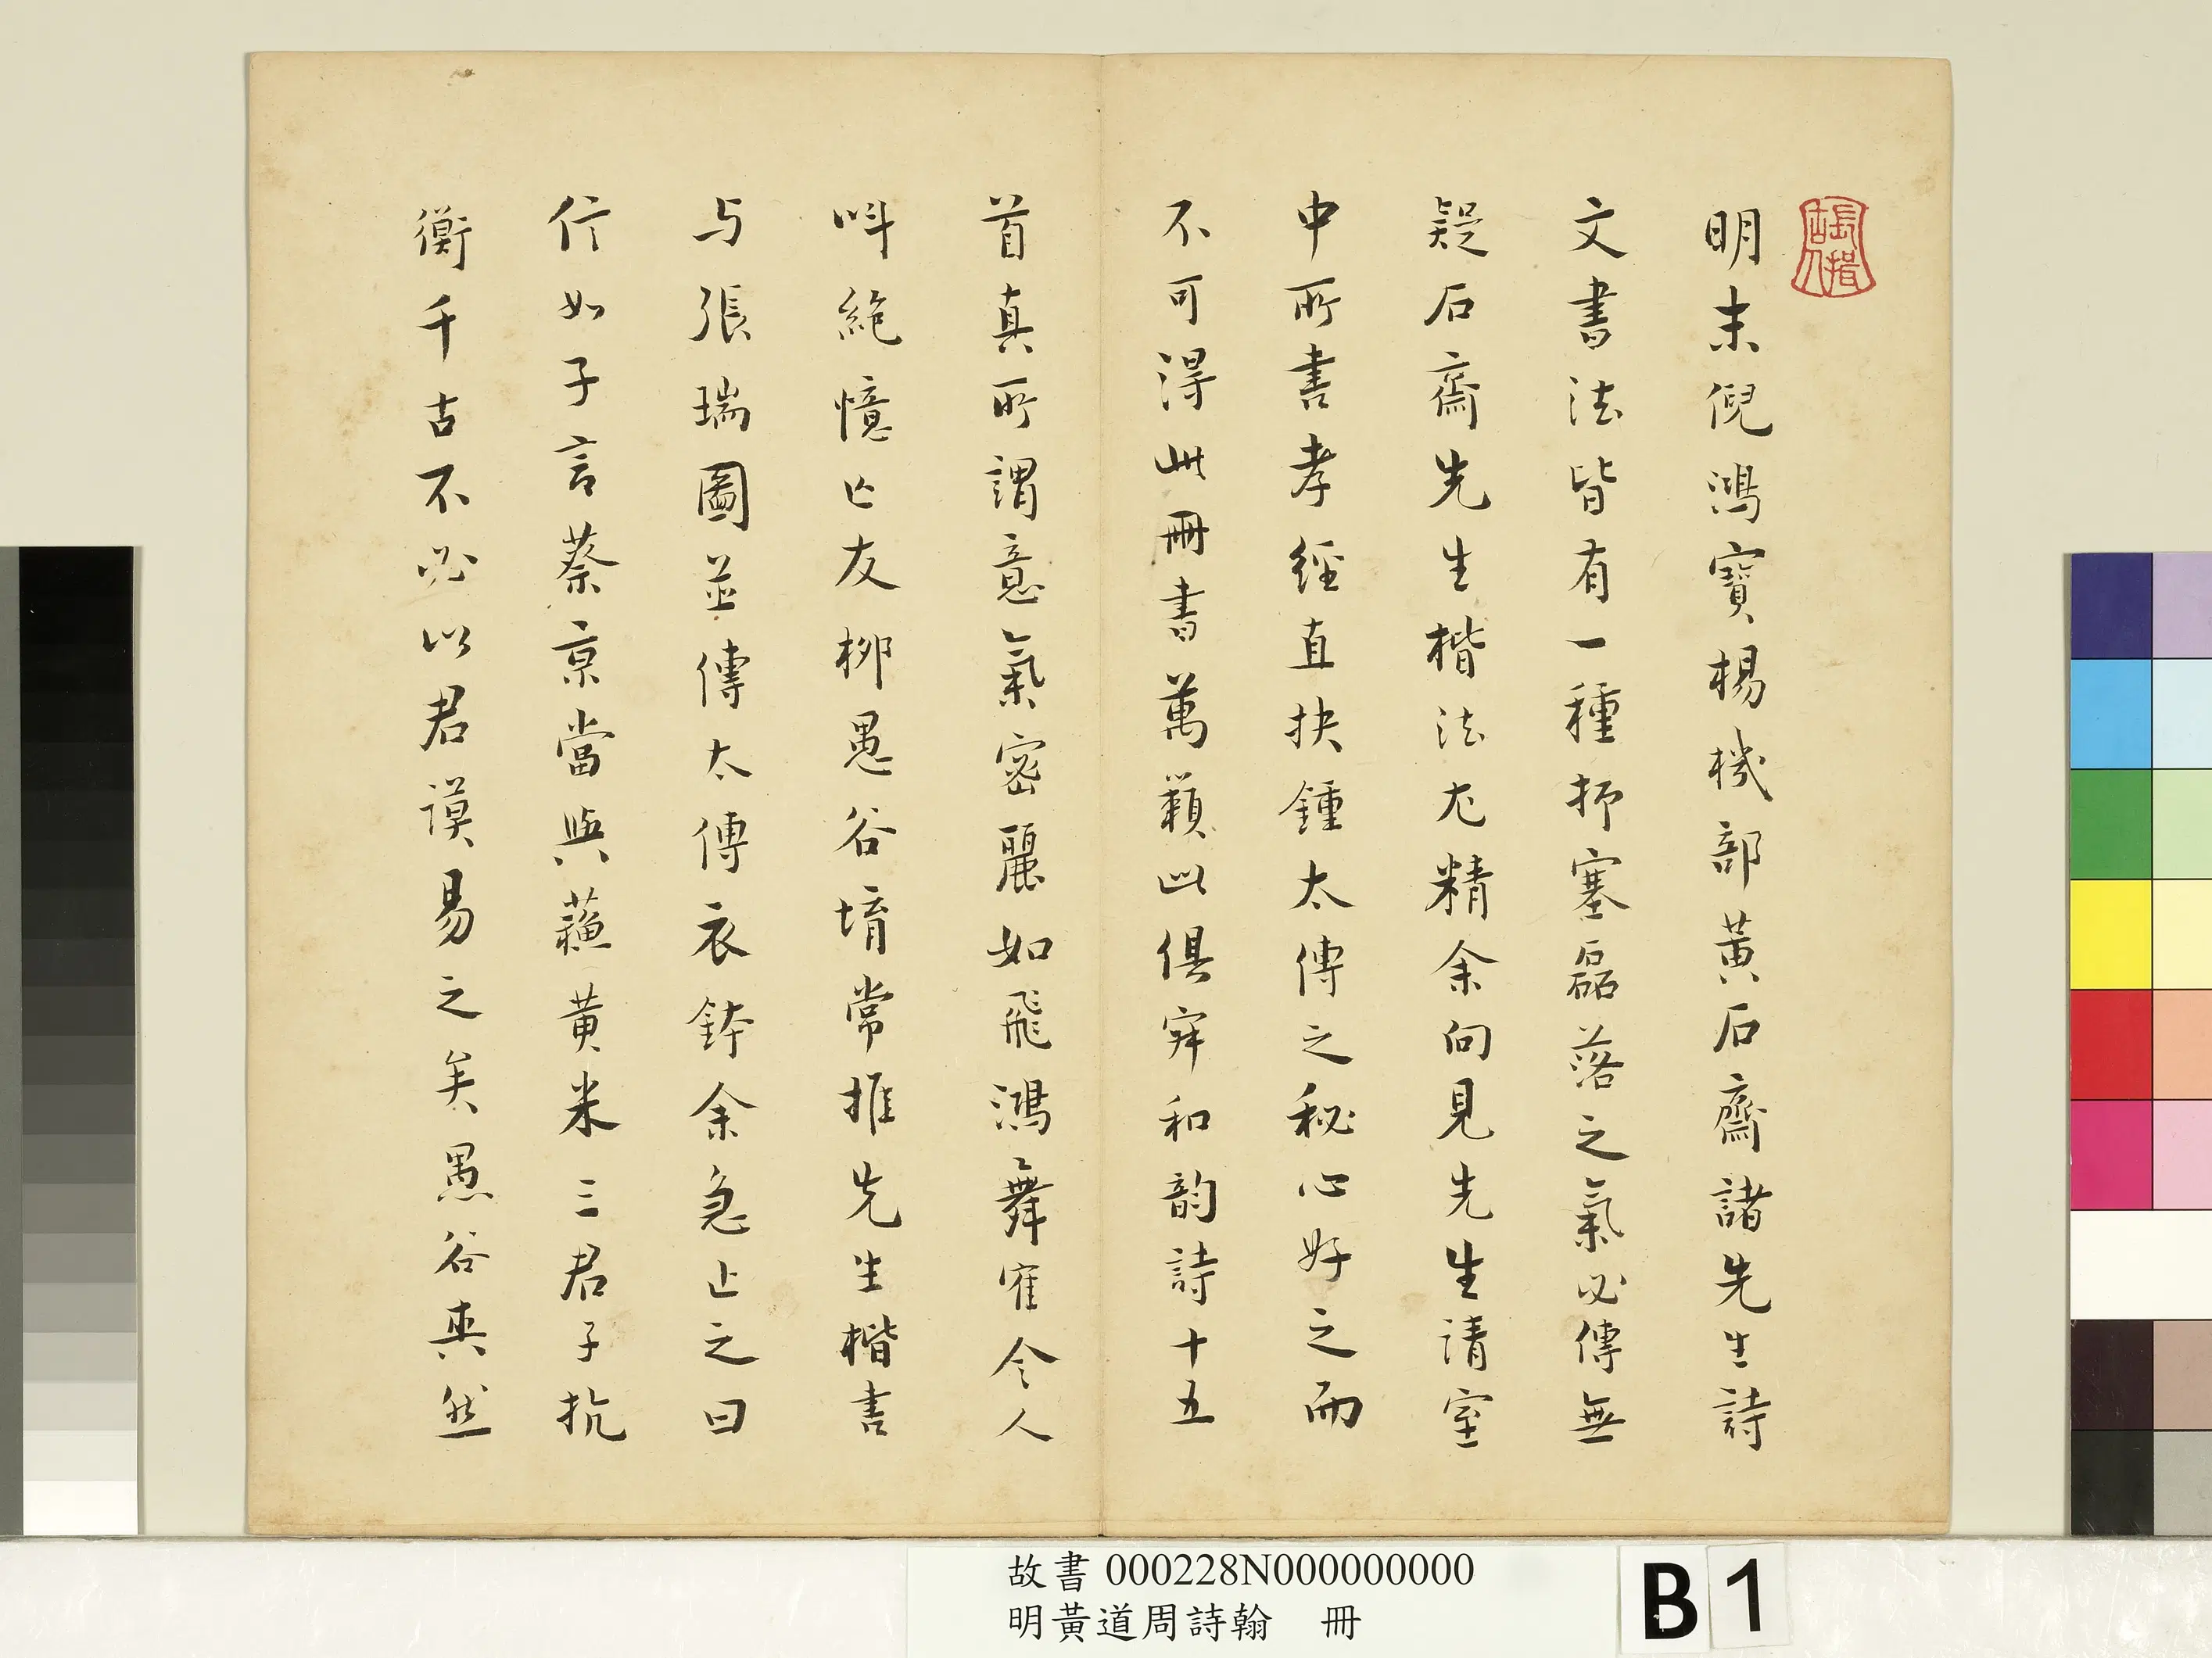 明末倪鴻寶楊機部黃石齋諸先生詩
文書法皆有一種抑塞磊落之氣必傳無
疑石齋先生楷法尤精余向見先生請室
中所書孝經直抉鍾太傅之秘心好之而
不可得此冊書萬籟此俱寂和韵詩十五
首真所謂意氣密麗如飛鴻舞雀令人
叫絕憶亡友柳愚谷堉常推先生楷書
与張瑞圖並傳太傅衣鉢余急止之曰
信如子言蔡京當與蘓黃米三君子抗
衡千古不必以君謨易之矣愚谷爽然
故書 000228N000000000
明黃道周詩翰 冊
B 1